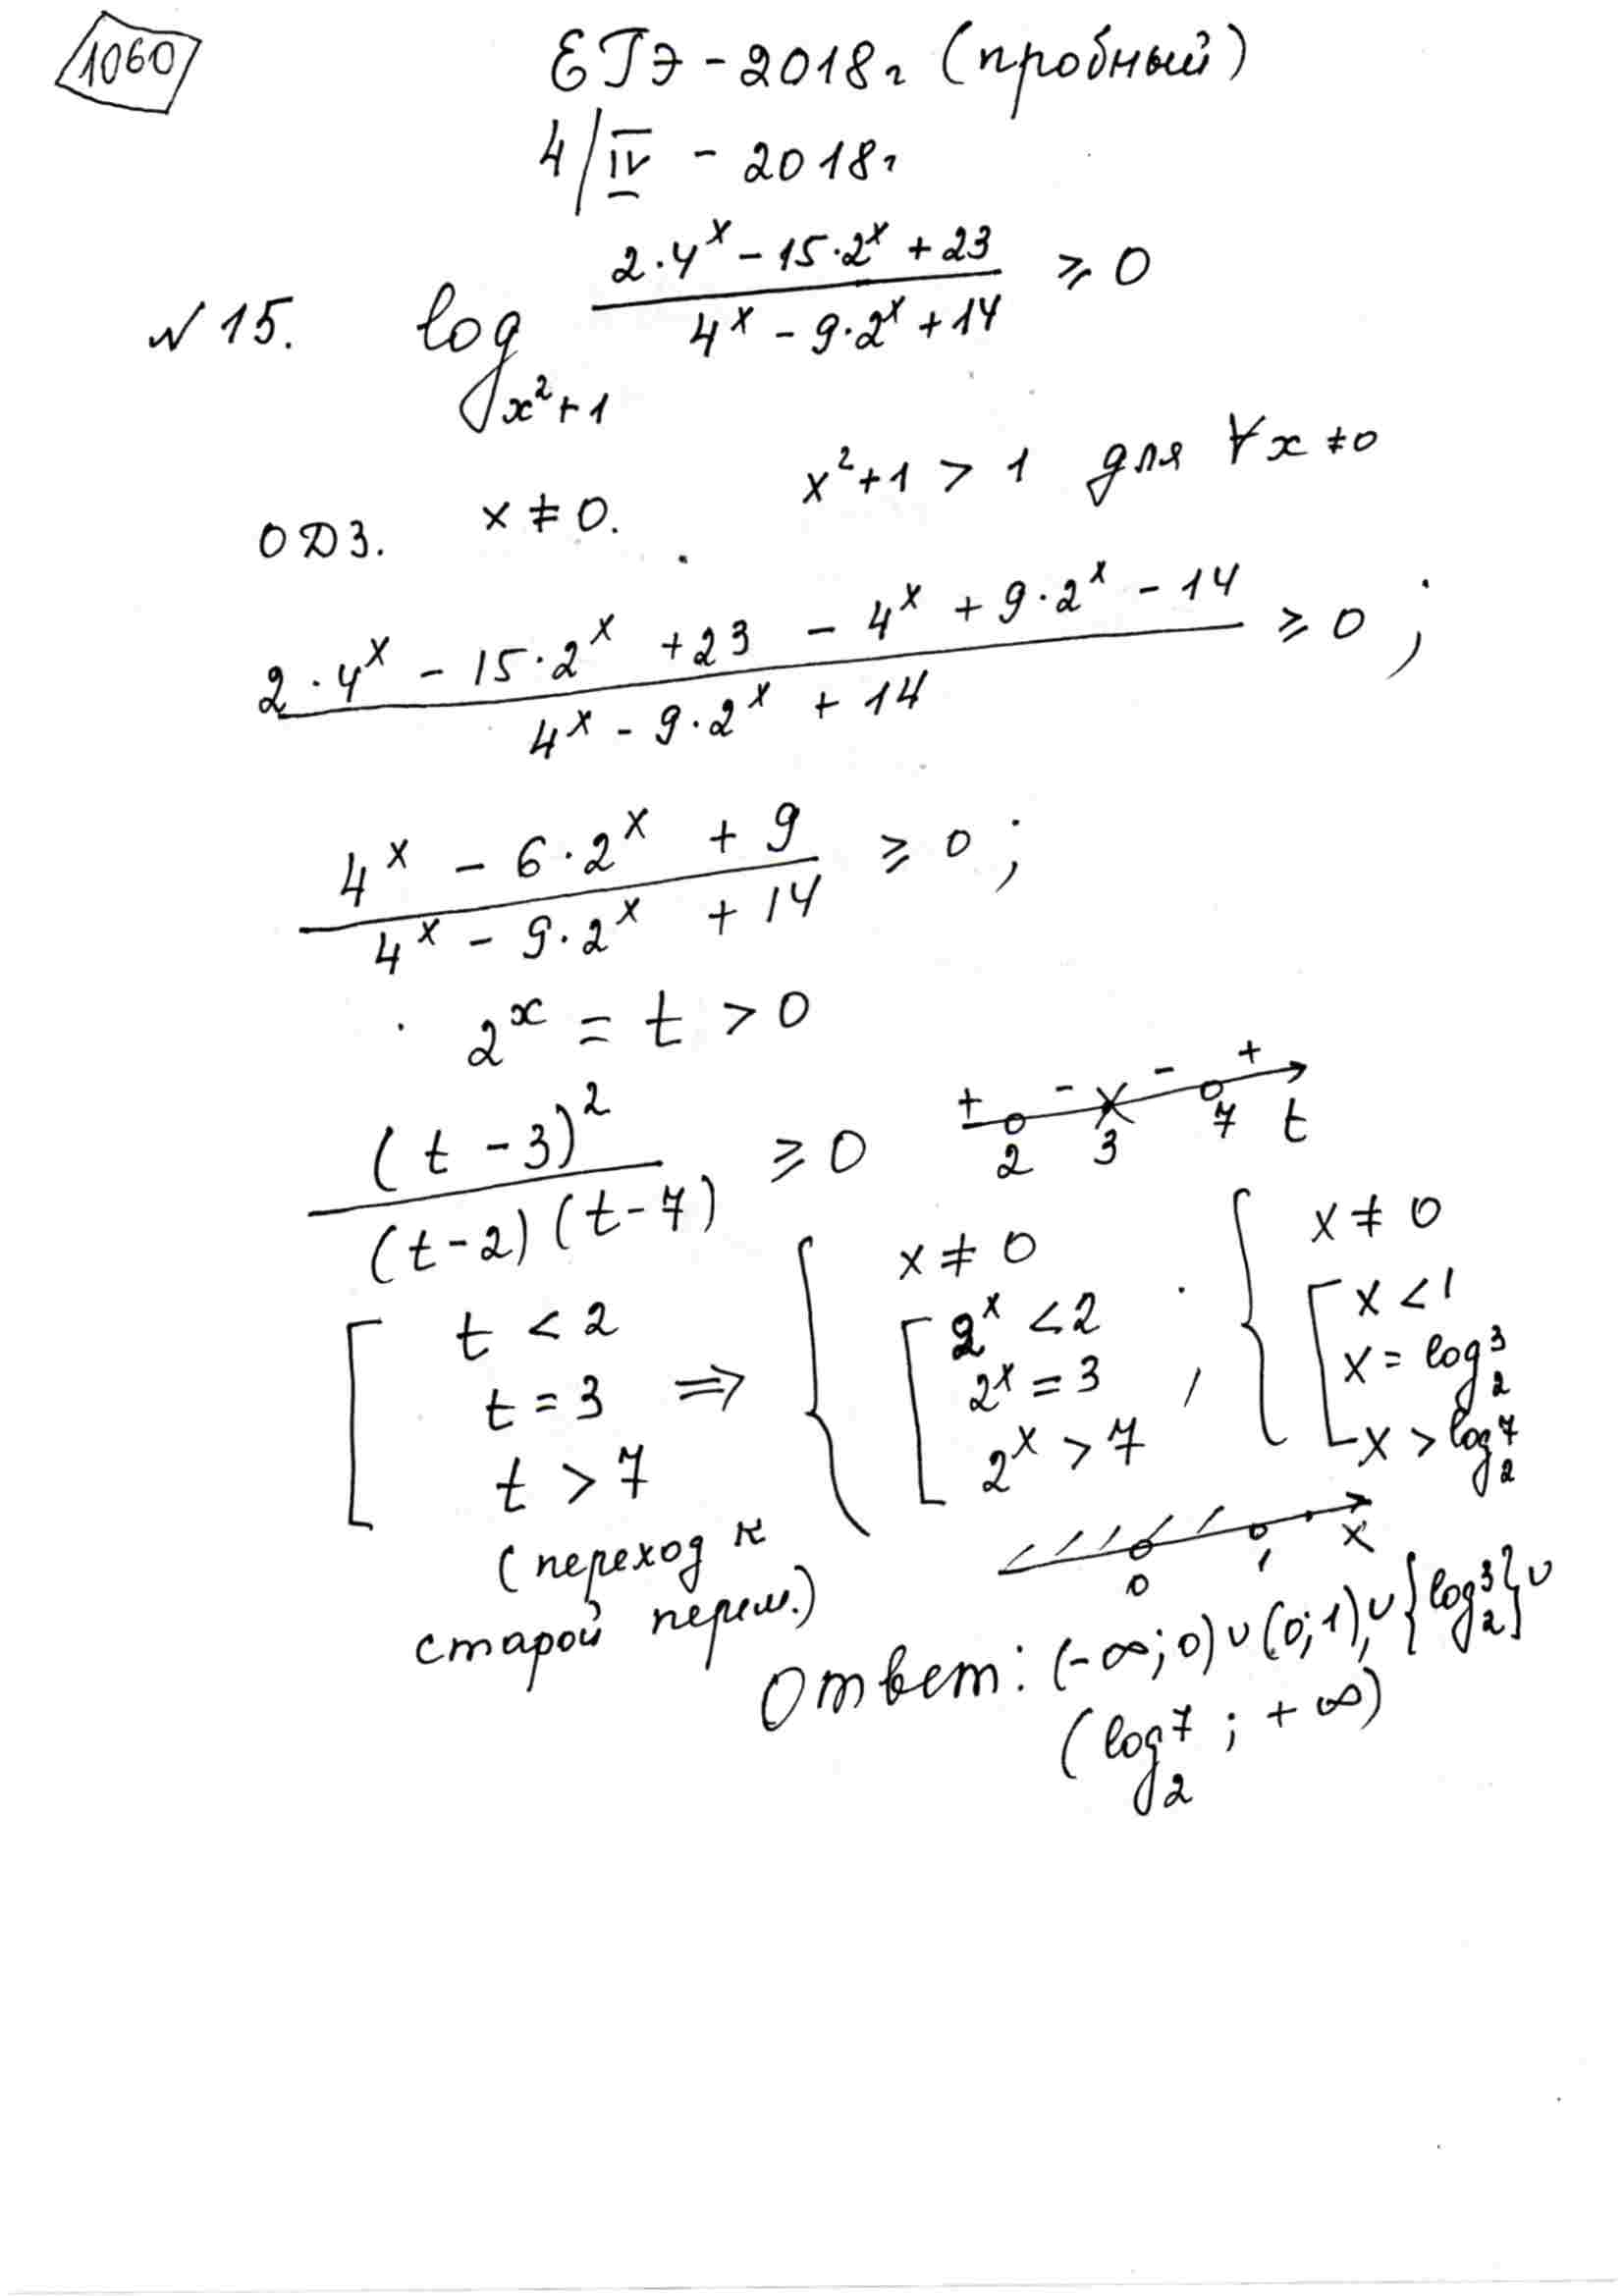 1060
ЕГЭ - 2018г (пробный)
4/IV - 2018г
№15. log_{x²+1} (2·4^x - 15·2^x + 23)/(4^x - 9·2^x + 14) ≥ 0
ОДЗ. x ≠ 0. x² + 1 > 1 для ∀x ≠ 0
(2·4^x - 15·2^x + 23 - 4^x + 9·2^x - 14)/(4^x - 9·2^x + 14) ≥ 0 ;
(4^x - 6·2^x + 9)/(4^x - 9·2^x + 14) ≥ 0 ;
2^x = t > 0
(t - 3)²/((t - 2)(t - 7)) ≥ 0
+ - - +
2 3 7 t
[ t < 2
t = 3
t > 7
⇒
{ x ≠ 0
[ 2^x < 2
2^x = 3
2^x > 7
;
{ x ≠ 0
[ x < 1
x = log_2 3
x > log_2 7
(переход к
старой перем.)
0 1 x
Ответ: (-∞; 0) ∪ (0; 1) ∪ {log_2 3} ∪
(log_2 7 ; +∞)